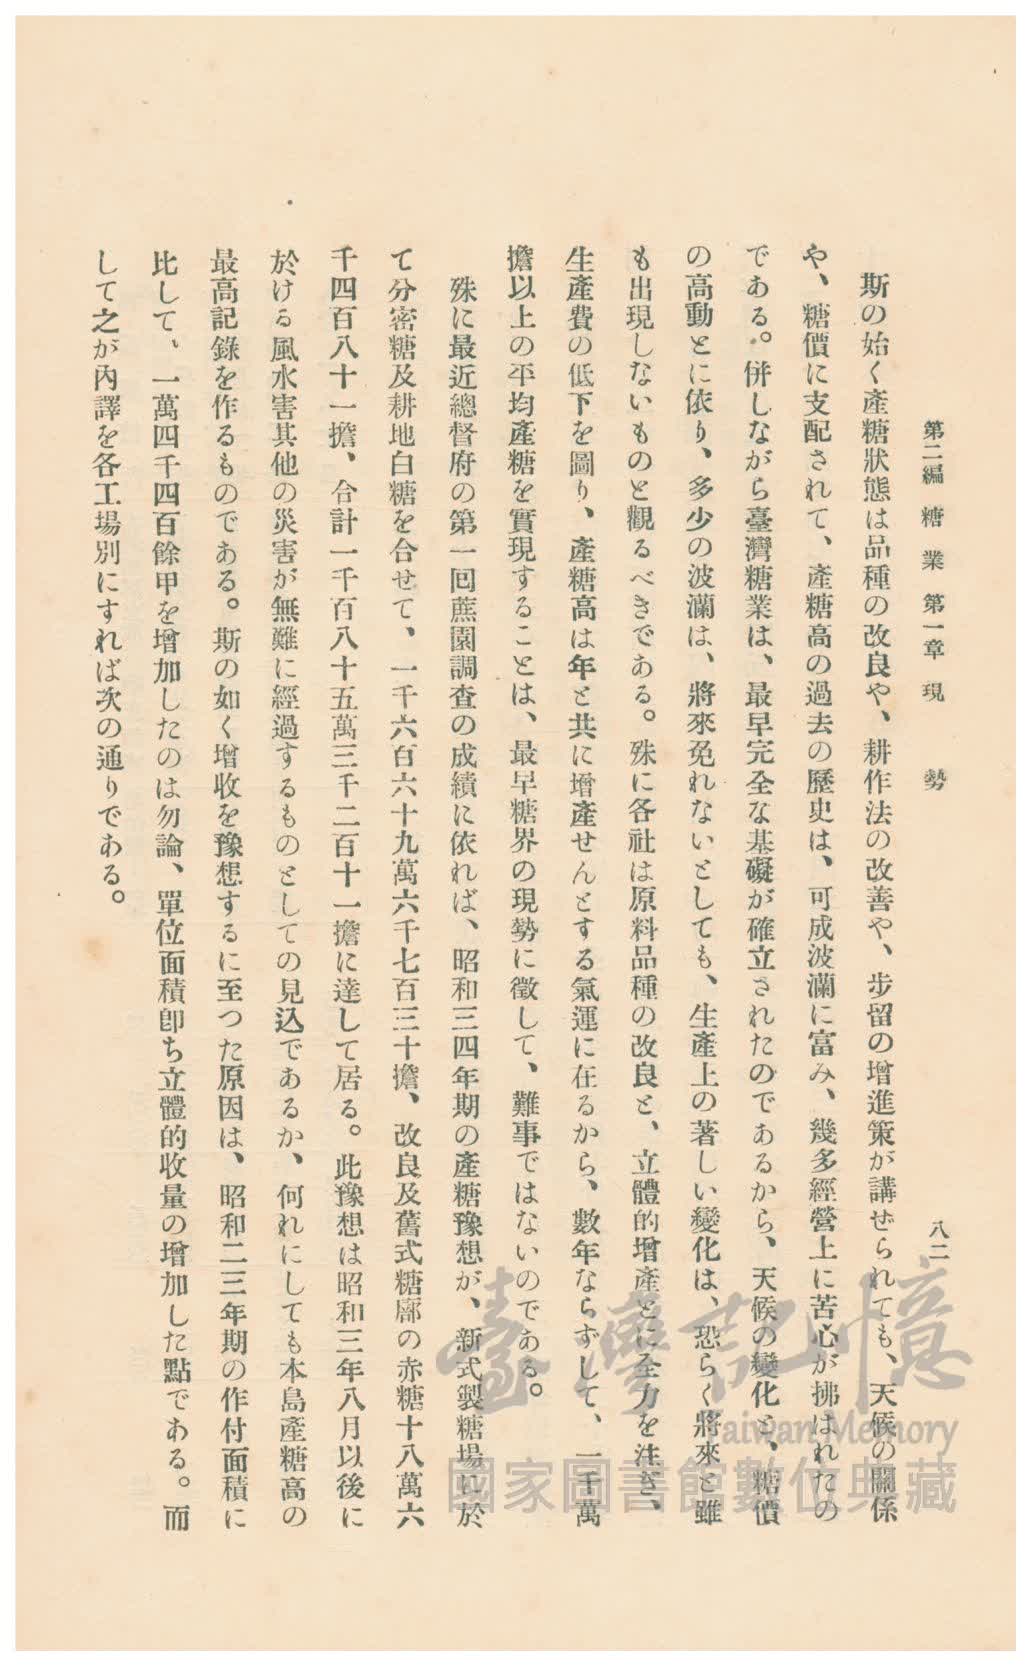 第二編 糖業 第一章 現勢 八二
斯の始く產糖狀態は品種の改良や、耕作法の改善や、步留の增進策が講ぜられても、天候の關係
や、糖價に支配されて、產糖高の過去の歷史は、可成波瀾に富み、幾多經營上に苦心が拂はれたの
である。併しながら臺灣糖業は、最早完全な基礎が確立されたのであるから、天候の變化と、糖價
の高動とに依り、多少の波瀾は、將來免れないとしても、生產上の著しい變化は、恐らく將來と雖
も出現しないものと觀るべきである。殊に各社は原料品種の改良と、立體的增產とに全力を注ぎ、
生產費の低下を圖り、產糖高は年と共に增產せんとする氣運に在るから、數年ならずして、一千萬
擔以上の平均產糖を實現することは、最早糖界の現勢に徵して、難事ではないのである。
殊に最近總督府の第一回蔗園調查の成績に依れば、昭和三四年期の產糖豫想が、新式製糖場に於
て分密糖及耕地白糖を合せて、一千六百六十九萬六千七百三十擔、改良及舊式糖廍の赤糖十八萬六
千四百八十一擔、合計一千百八十五萬三千二百十一擔に達して居る。此豫想は昭和三年八月以後に
於ける風水害其他の災害が無難に經過するものとしての見込であるか、何れにしても本島產糖高の
最高記錄を作るものである。斯の如く增收を豫想するに至つた原因は、昭和二三年期の作付面積に
比して、一萬四千四百餘甲を增加したのは勿論、單位面積卽ち立體的收量の增加した點である。而
して之が內譯を各工場別にすれば次の通りである。
臺灣記憶
Taiwan Memory
國家圖書館數位典藏